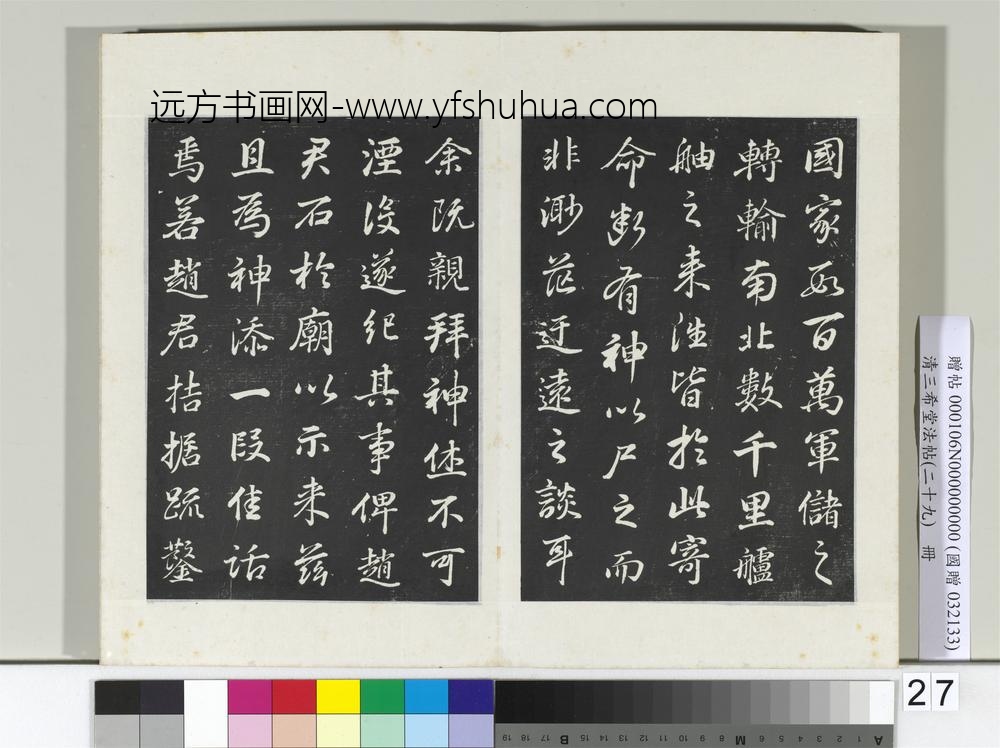 远方书画网-www.yfshuhua.com
國家數百萬軍儲之
轉輸南北數千里艫
舳之来往皆於此寄
命斷有神以尸之而
非渺茫迂遠之談耳
余既親拜神休不可
湮没遂紀其事俾趙
君石於廟以示来兹
且為神添一段佳話
焉若趙君拮据疏鑿
贈帖 000106N000000000 (國贈 032133)
清三希堂法帖(二十九) 冊
27